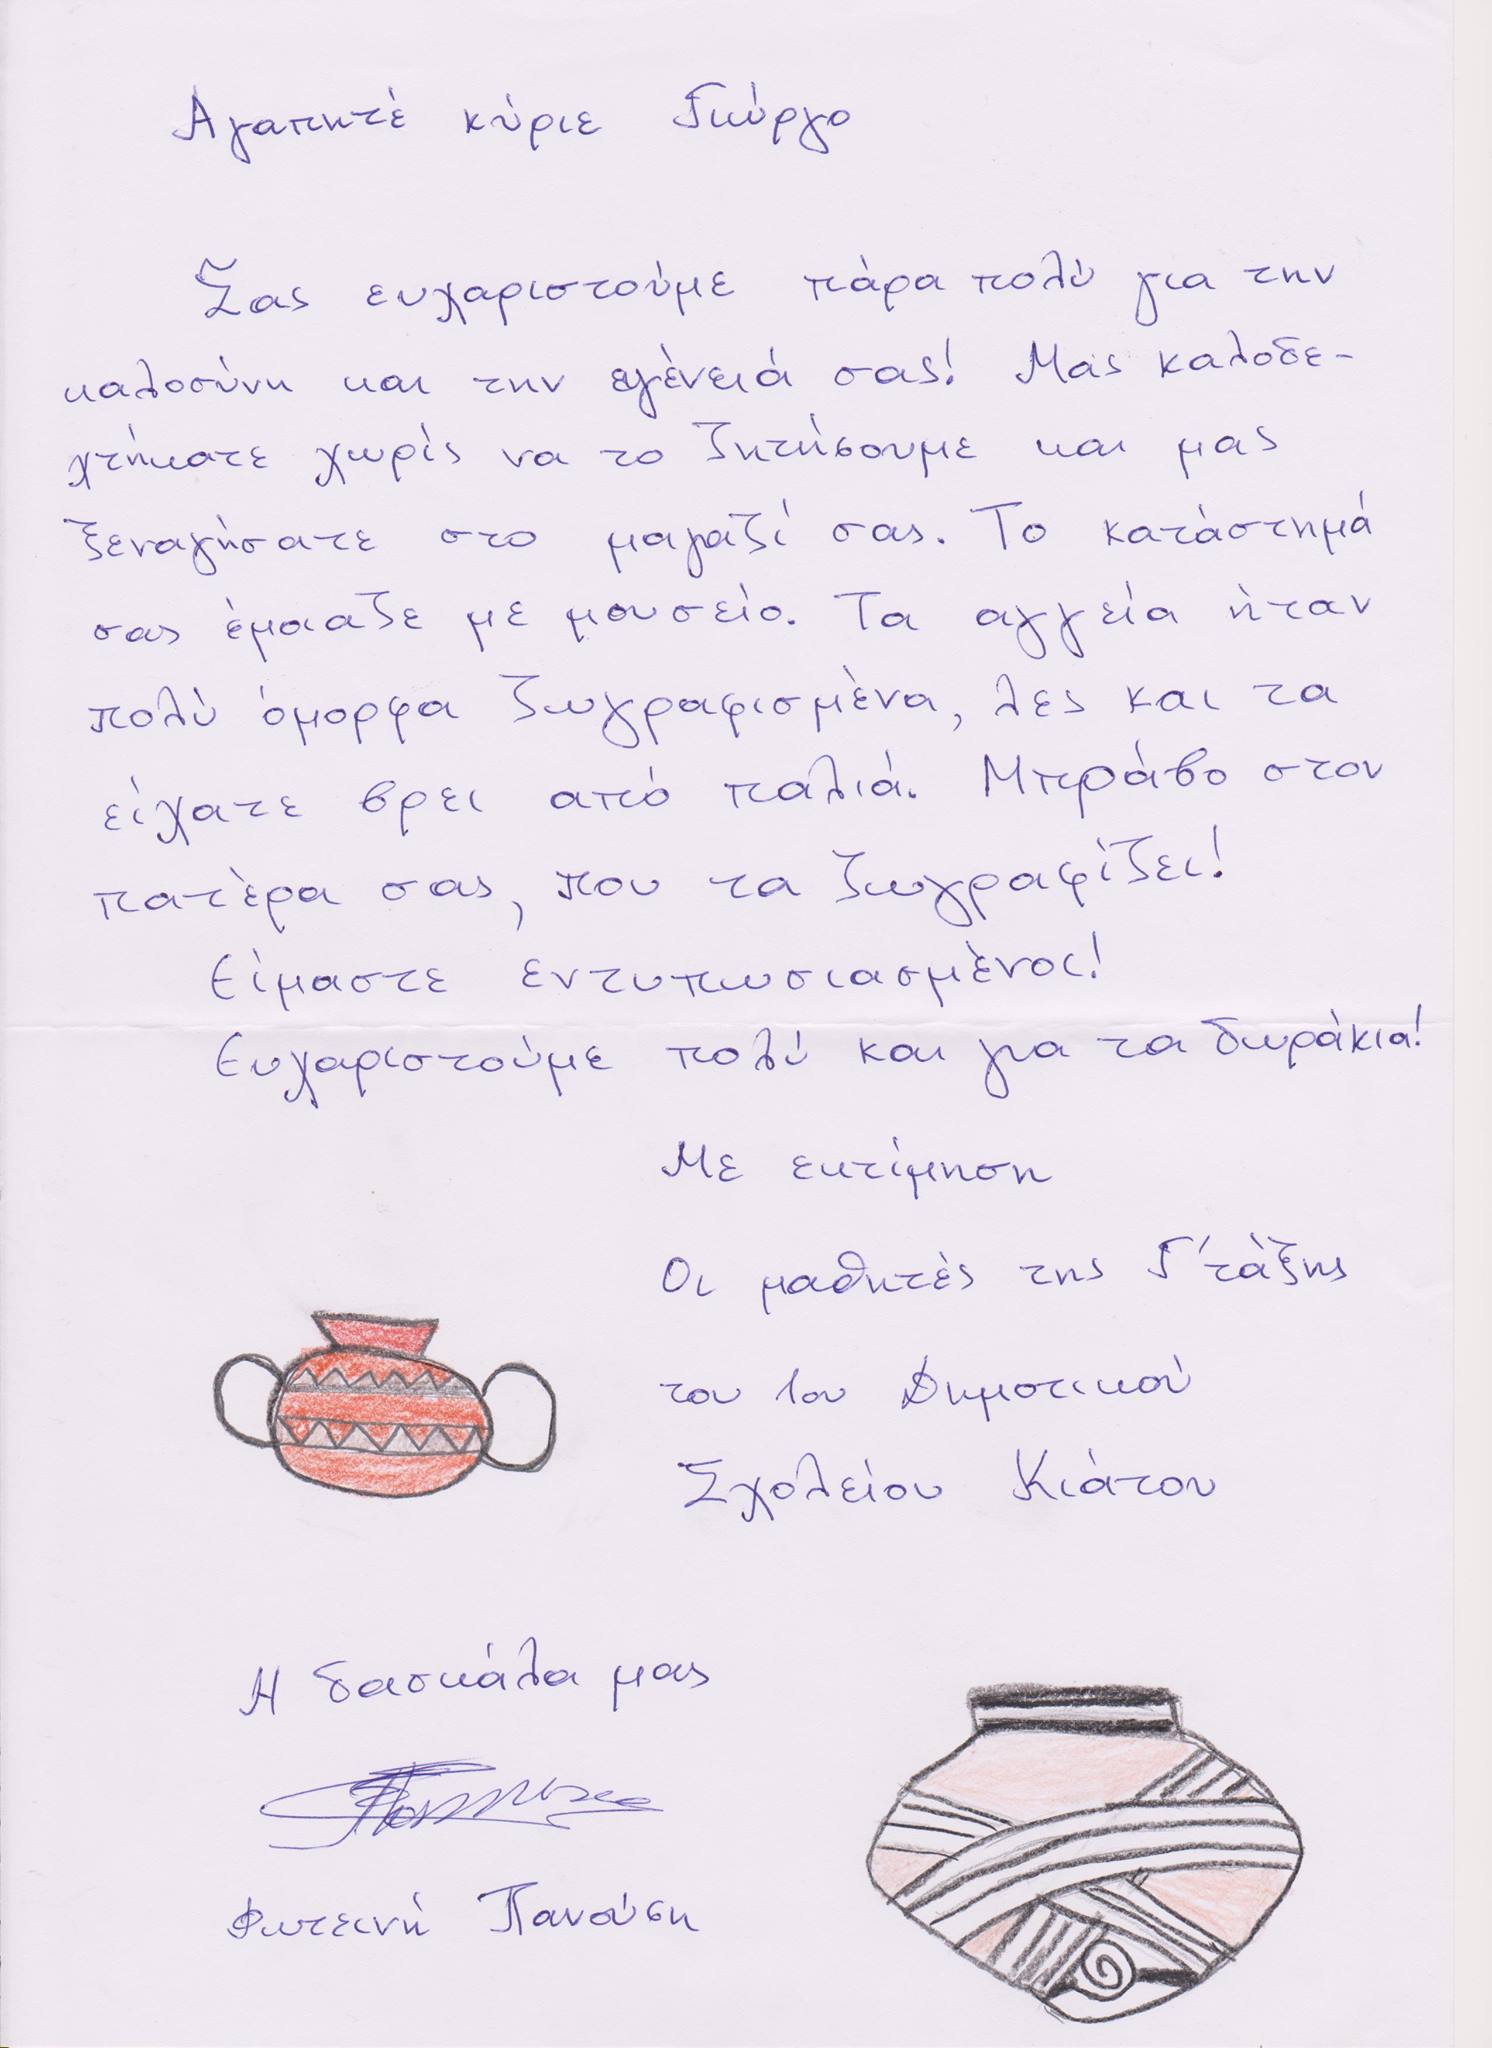 Αγαπητέ κύριε Γιώργο
Σας ευχαριστούμε πάρα πολύ για την
καλοσύνη και την ευγένειά σας! Μας καλοδε-
χτήκατε χωρίς να το ζητήσουμε και μας
ξεναγήσατε στο μαγαζί σας. Το κατάστημά
σας έμοιαζε με μουσείο. Τα αγγεία ήταν
πολύ όμορφα ζωγραφισμένα, λες και τα
είχατε βρει από παλιά. Μπράβο στον
πατέρα σας, που τα ζωγραφίζει!
Είμαστε εντυπωσιασμένοι!
Ευχαριστούμε πολύ και για τα δωράκια!
Με εκτίμηση
Οι μαθητές της Γ' τάξης
του 1ου Δημοτικού
Σχολείου Κιάτου
Η δασκάλα μας
Φωτεινή Πανούση